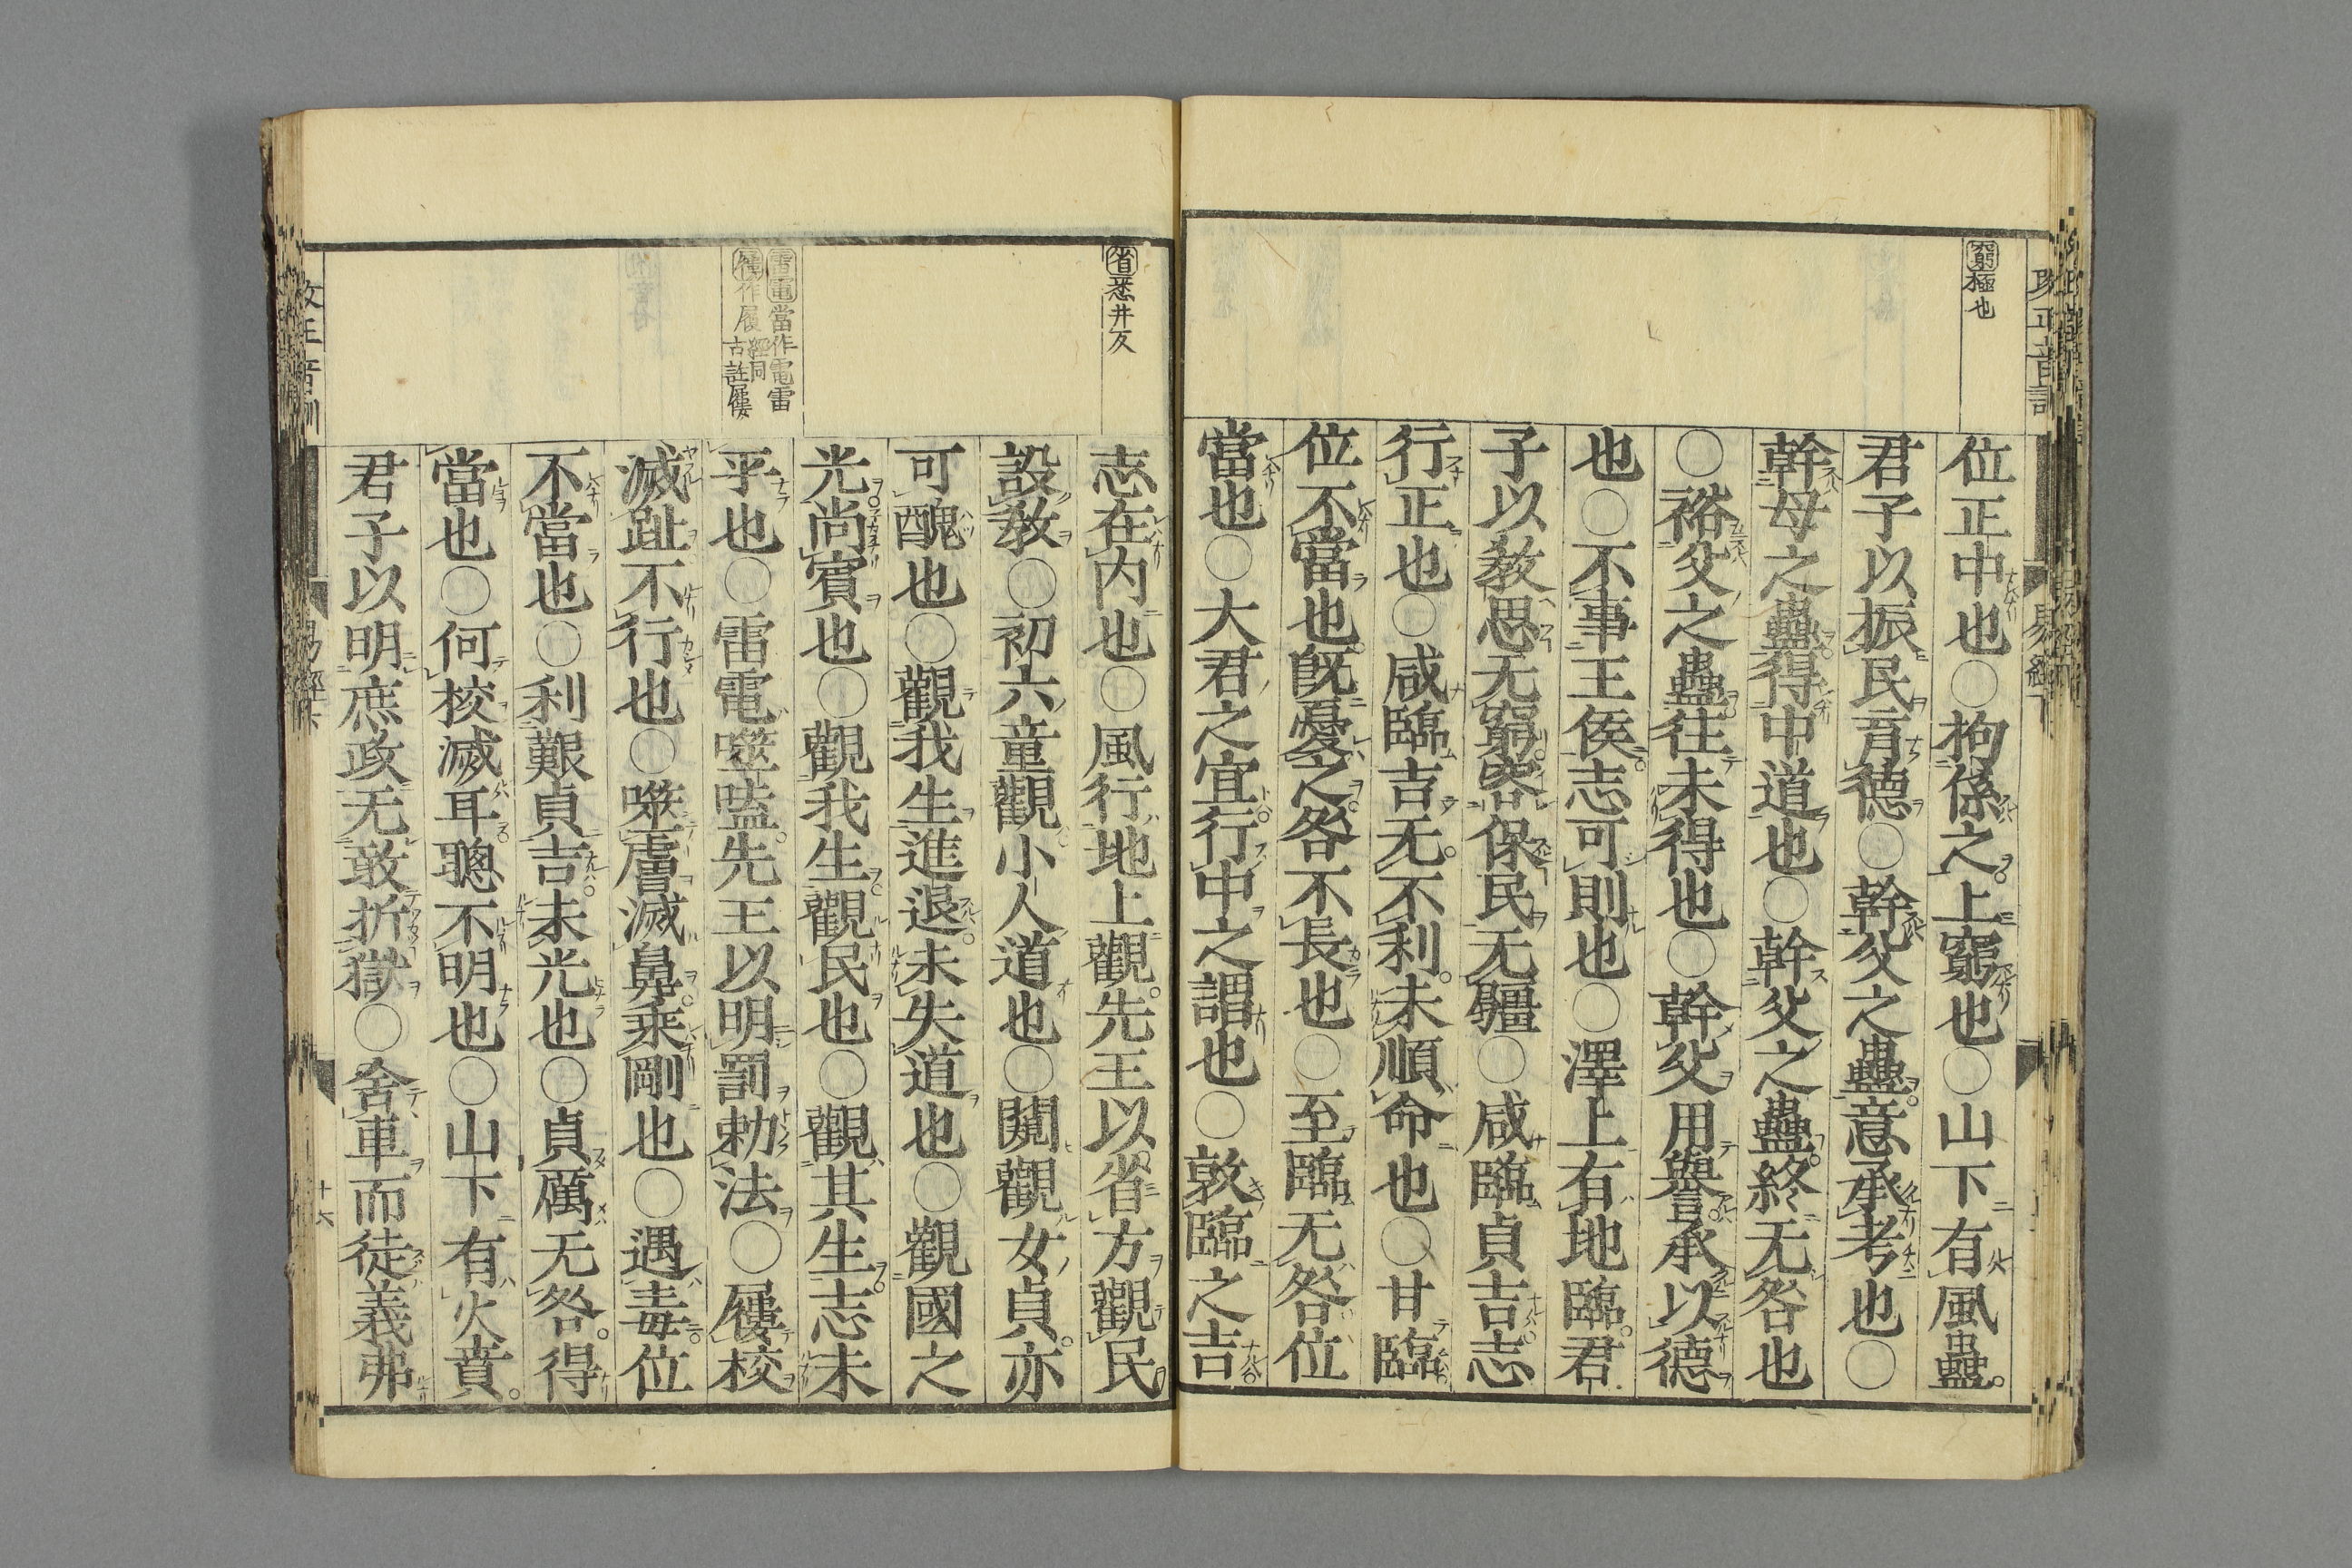 窮極也
位正中也○拘係之上窮也○山下有風蠱
君子以振民育德○幹父之蠱意承考也○
幹母之蠱得中道也○幹父之蠱終无咎也
○裕父之蠱往未得也○幹父用譽承以德
也○不事王侯志可則也○澤上有地臨君
子以敎思无窮容保民无疆○咸臨貞吉志
行正也○咸臨吉无不利未順命也○甘臨
位不當也旣憂之咎不長也○至臨无咎位
當也○大君之宜行中之謂也○敦臨之吉
省悉井反
志在内也○風行地上觀先王以省方觀民
設敎○初六童觀小人道也○闚觀女貞亦
可醜也○觀我生進退未失道也○觀國之
光尚賓也○觀我生觀民也○觀其生志未
雷電當作電雷
屨作履經同古註屨
平也○雷電噬嗑先王以明罰勅法○屨校
滅趾不行也○噬膚滅鼻乘剛也○遇毒位
不當也○利艱貞吉未光也○貞厲无咎得
當也○何校滅耳聰不明也○山下有火賁
君子以明庶政无敢折獄○舍車而徒義弗
易經下
十六